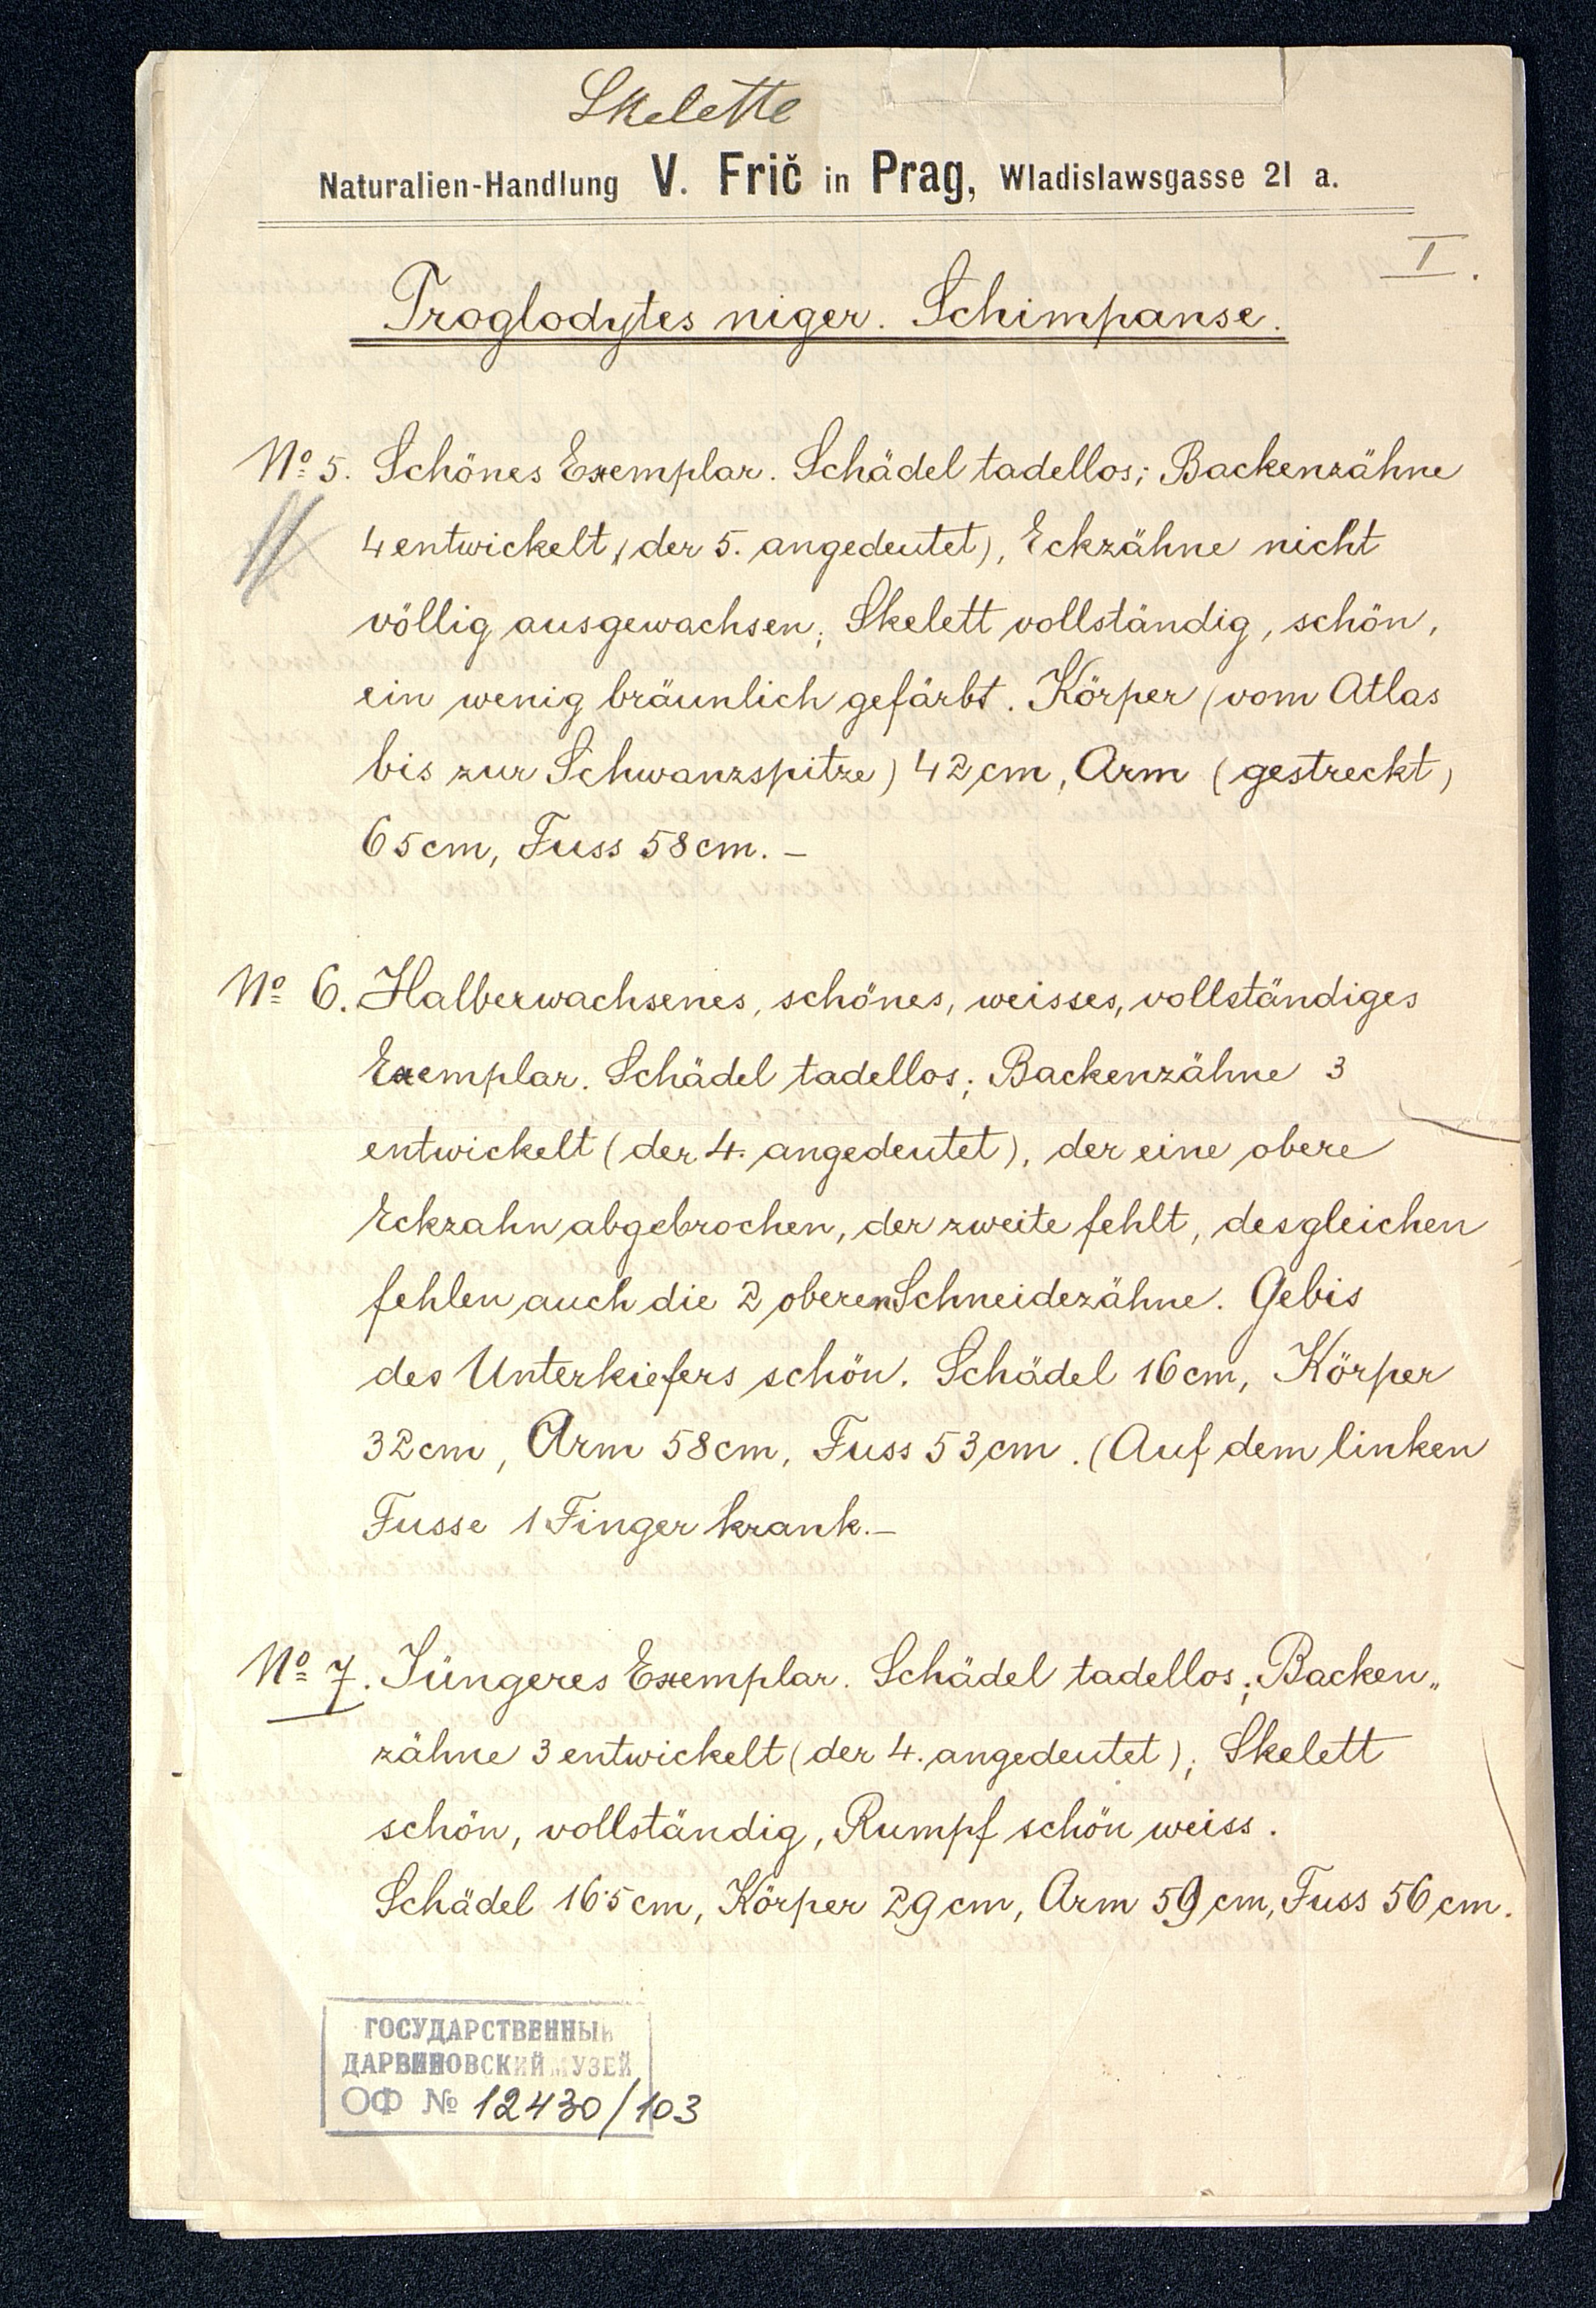 Skelette
Naturalien-Handlung V. Frič in Prag, Wladislawsgasse 21 a.
I.
Troglodytes niger. Schimpanse.
No 5. Schönes Exemplar. Schädel tadellos; Backenzähne
4 entwickelt (der 5. angedeutet), Eckzähne nicht
völlig ausgewachsen; Skelett vollständig, schön,
ein wenig bräunlich gefärbt. Körper (vom Atlas
bis zur Schwanzspitze) 42 cm, Arm (gestreckt)
65 cm, Fuss 58 cm. –
No 6. Halberwachsenes, schönes, weisses, vollständiges
Exemplar. Schädel tadellos; Backenzähne 3
entwickelt (der 4. angedeutet), der eine obere
Eckzahn abgebrochen, der zweite fehlt, desgleichen
fehlen auch die 2 oberen Schneidezähne. Gebis
des Unterkiefers schön. Schädel 16 cm, Körper
32 cm, Arm 58 cm, Fuss 53 cm. (Auf dem linken
Fusse 1 Finger krank. –
No 7. Jüngeres Exemplar. Schädel tadellos; Backen„
zähne 3 entwickelt (der 4. angedeutet); Skelett
schön, vollständig, Rumpf schön weiss.
Schädel 16·5 cm, Körper 29 cm, Arm 59 cm, Fuss 56 cm.
ГОСУДАРСТВЕННЫЙ
ДАРВИНОВСКИЙ МУЗЕЙ
ОФ № 12430/103